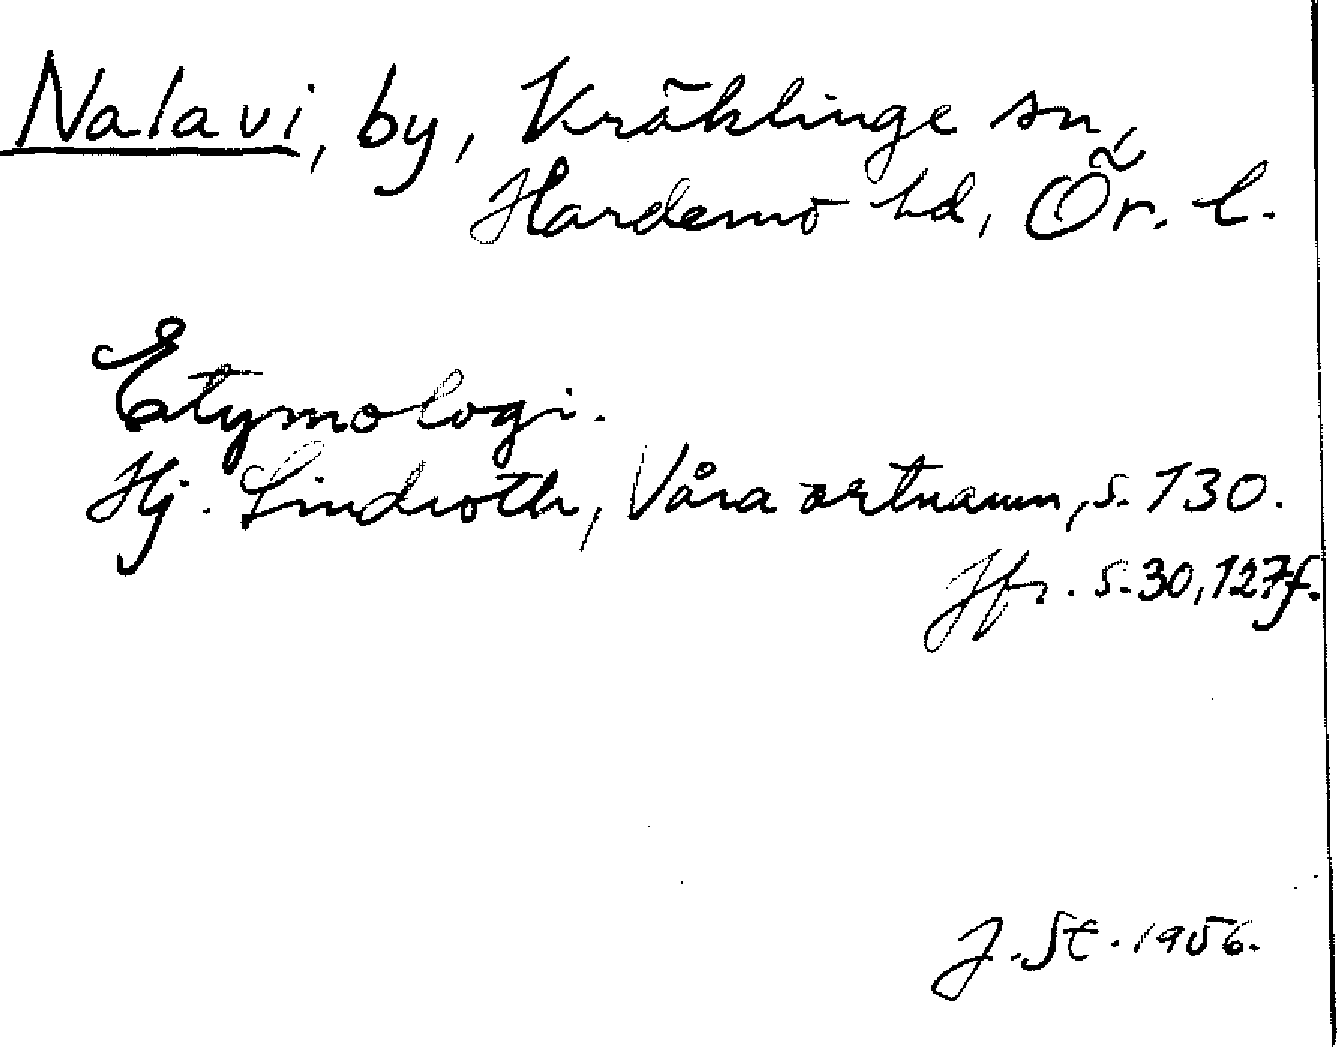 Nalavi, by, Kräklinge sn,
Hardemo hd, Ör. l.
Etymologi.
Hj. Lindroth, Våra ortnamn, s. 130.
Jfr. s. 30, 127f.
J. St. 1956.